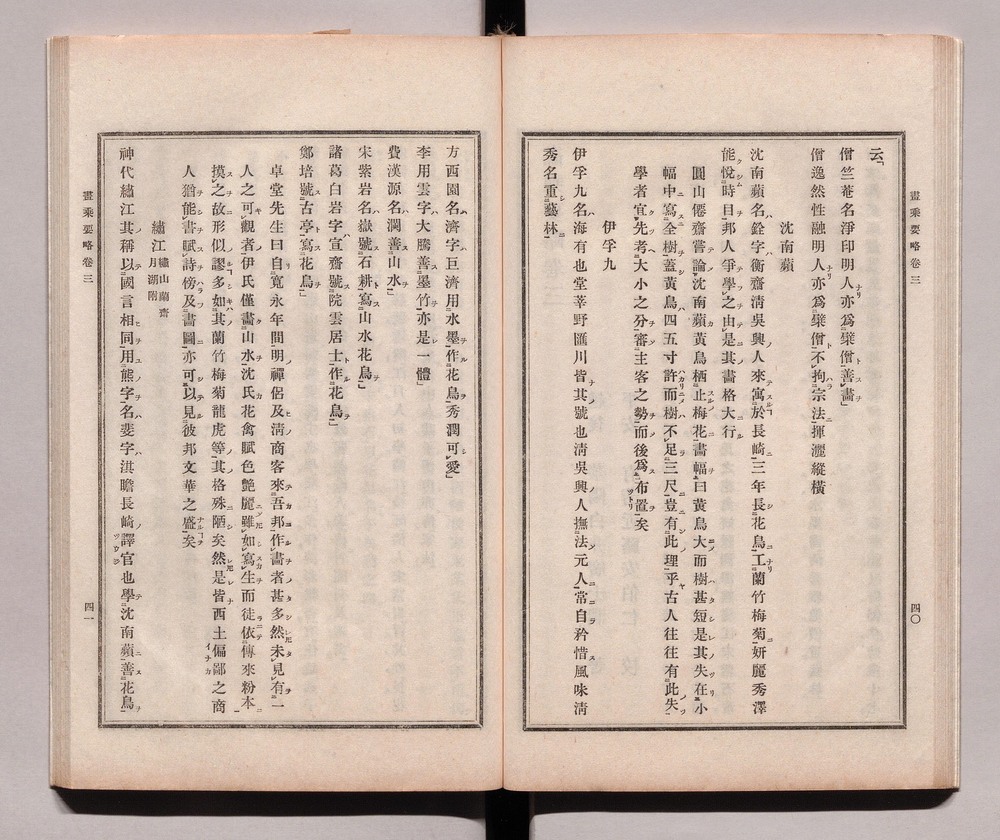 畫乘要略卷三
四〇
云
僧竺菴名淨印明人亦爲檗僧善畫
僧逸然性融明人亦爲檗僧不拘宗法揮灑縱橫
沈南蘋
沈南蘋名銓字衡齋淸吳興人來寓於長崎三年長花鳥工蘭竹梅菊姸麗秀澤
能悅時目邦人爭學之由是其畫格大行
圓山僊齋嘗論沈南蘋黃鳥栖止梅花畫幅曰黃鳥大而樹甚短是其失在小
幅中寫全樹蓋黃鳥四五寸許而樹不足三尺豈有此理乎古人往往有此失
學者宜先考大小之分審主客之勢而後爲布置矣
伊孚九
伊孚九名海有也堂莘野匯川皆其號也淸吳興人撫法元人常自矜惜風味淸
秀名重藝林
方西園名濟字巨濟用水墨作花鳥秀潤可愛
李用雲字大騰善墨竹亦是一體
費漢源名瀾善山水
宋紫岩名嶽號石耕寫山水花鳥
諸葛白岩字宣齋號院雲居士作花鳥
鄭培號古亭寫花鳥
卓堂先生曰自寬永年間明禪侶及淸商客來吾邦作畫者甚多然未見有一
人之可觀者伊氏僅畫山水沈氏花禽賦色艶麗雖如寫生而徒依傳來粉本
摸之故形似謬多如其蘭竹梅菊龍虎等其格殊陋矣然是皆西土偏鄙之商
人猶能書賦詩傍及畫圖亦可以見彼邦文華之盛矣
繡江 繡山 蘭齋 月湖附
神代繡江其稱以國言相同用熊字名斐字淇瞻長崎譯官也學沈南蘋善花鳥
畫乘要略卷三
四一